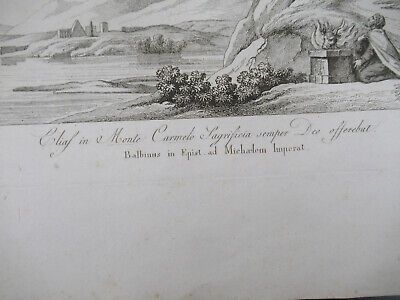 Elias in Monte Carmelo Sagrificia semper Deo offerebat.
Balbinus in Epist. ad Michaelem Imperat.